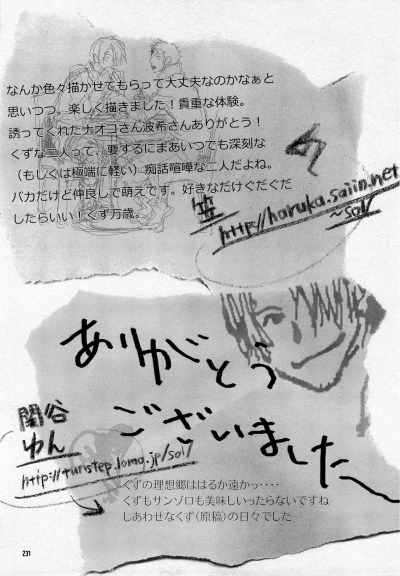 なんか色々描かせてもらって大丈夫なのかなぁと
思いつつ。楽しく描きました！貴重な体験。
誘ってくれたナオコさん波希さんありがとう！
くずな二人って、要するにまあいつでも深刻な
（もしくは極端に軽い）痴話喧嘩な二人だよね。
バカだけど仲良しで萌えです。好きなだけぐだぐだ
したらいい！くず万歳。
http://haruka.saiin.net
/~sol/
ありがとう
ございました
関谷
ゆん
くずの理想郷ははるか遠かっ‥‥
くずもサンゾロも美味しいったらないですね
しあわせなくず（原稿）の日々でした
231